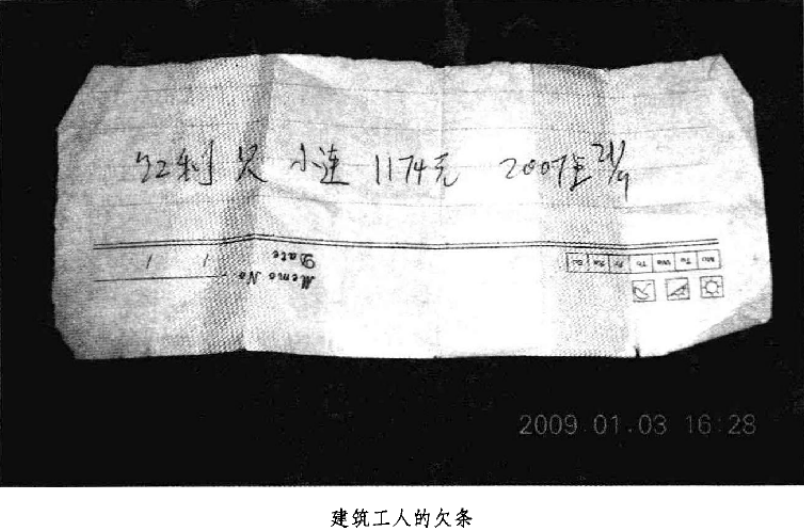 红利欠 小连 1174元 2007年21/9
Memo No
Date / /
Mo Tu We Th Fr Sa Su
2009 01.03 16:28
建筑工人的欠条